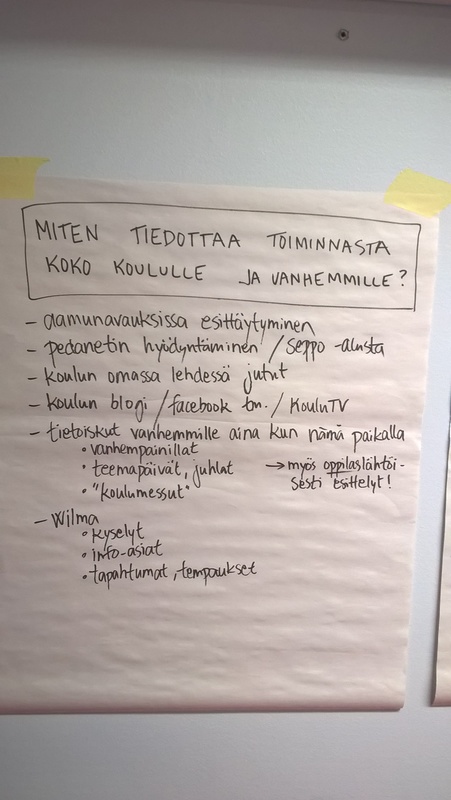 MITEN TIEDOTTAA TOIMINNASTA
KOKO KOULULLE JA VANHEMMILLE?
- aamunavauksissa esittäytyminen
- pedanetin hyödyntäminen / Seppo -alusta
- koulun omassa lehdessä jutut
- koulun blogi / facebook tm. / KouluTV
- tietoiskut vanhemmille aina kun nämä paikalla
• vanhempainillat
• teemapäivät, juhlat → myös oppilaslähtöi-
• "koulumessut" sesti esittelyt!
- Wilma
• kyselyt
• info-asiat
• tapahtumat, tempaukset